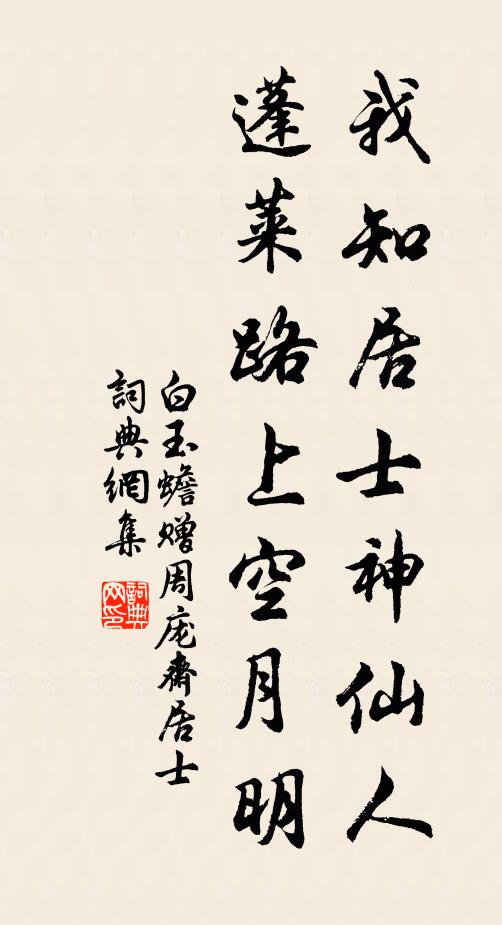 我知居士神仙人
蓬莱路上空月明
白玉蟾赠周庞斋居士
詞典網集
詞典网印